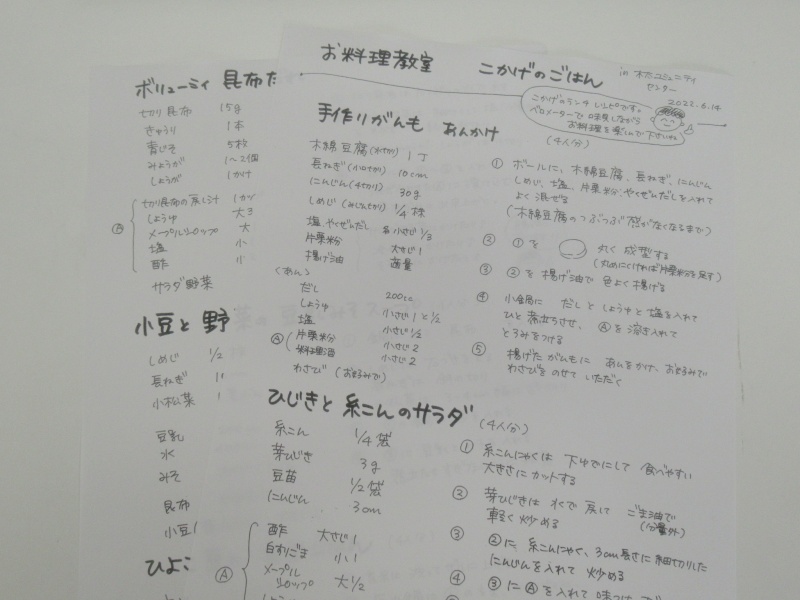 お料理教室 こかげのごはん
in 木太コミュニティ
センター
2022.6.14
こかげのランチ レシピです。
ベロメーターで 味見しながら
お料理を楽しんで下さいね
手作りがんも あんかけ
(4人分)
木綿豆腐(水切り) 1丁
長ねぎ(小口切り) 10cm
にんじん(千切り) 30g
しめじ(みじん切り) 1/4株
塩、やくぜんだし 各小さじ1/3
片栗粉 大さじ1
揚げ油 適量
(あん)
だし 200cc
しょうゆ 小さじ1と1/2
塩 小さじ1/2
Ⓐ 片栗粉 小さじ2
料理酒 小さじ2
わさび (お好みで)
① ボールに、木綿豆腐、長ねぎ、にんじん
しめじ、塩、片栗粉、やくぜんだしを入れて
よく混ぜる
(木綿豆腐のつぶつぶ感がなくなるまで)
② ①を 丸く 成型する
(丸めにくければ片栗粉を足す)
③ ②を 揚げ油で 色よく揚げる
④ 小鍋に だしと しょうゆと 塩を入れて
ひと沸立ちさせ、Ⓐを溶き入れて
とろみをつける
⑤ 揚げた がんもに あんをかけ、お好みで
わさびを のせて いただく
ひじきと 糸こんのサラダ (4人分)
糸こん 1/4袋
芽ひじき 3g
豆苗 1/2袋
にんじん 3cm
Ⓐ 酢 大さじ1
白わりごま 小1
メープル
シロップ 大1/2
しょうゆ
① 糸こんにゃくは 下ゆでにして 食べやすい
大きさに カットする
② 芽ひじきは 水で 戻して ごま油で
(分量外)
軽く 炒める
③ ②に、糸こんにゃく、3cm長さに細切りした
にんじんを入れて 炒める
④ ③に Ⓐを入れて 味つけ
ボリューミィ 昆布た
切り昆布 15g
きゅうり 1本
青じそ 5枚
みょうが 1〜2個
しょうが 1かけ
Ⓐ 切り昆布の戻し汁 1カッ
しょうゆ 大3
メープルシロップ 大
塩 小
酢 小
サラダ野菜
小豆と 野
しめじ 1/2
長ねぎ
小松菜 1
豆乳
水
みそ
昆布
小豆
ひよこ